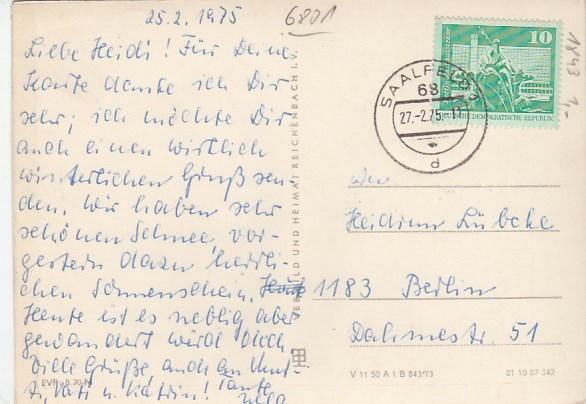 25.2.1975
6801
Liebe Heidi! Für Deine
Karte danke ich Dir
sehr; ich möchte Dir
auch einen wirklich
winterlichen Gruß sen-
den. Wir haben sehr
schönen Schnee, vor-
gestern dazu herrli-
chen Sonnenschein.
Heute ist es neblig aber
gewandert wird doch.
Viele Grüße, auch an Mut-
ti, Vati u. Katrin! Tante
EVP
BILD UND HEIMAT REICHENBACH I. V.
10
DEMOKRATISCHE REPUBLIK
SAALFELD
68
27.-2.75.-
d
1843
1,-
An
Lübcke
1183 Berlin
Dahmestr. 51
V 11 50 A 1 B 843/73
01 10 07 342